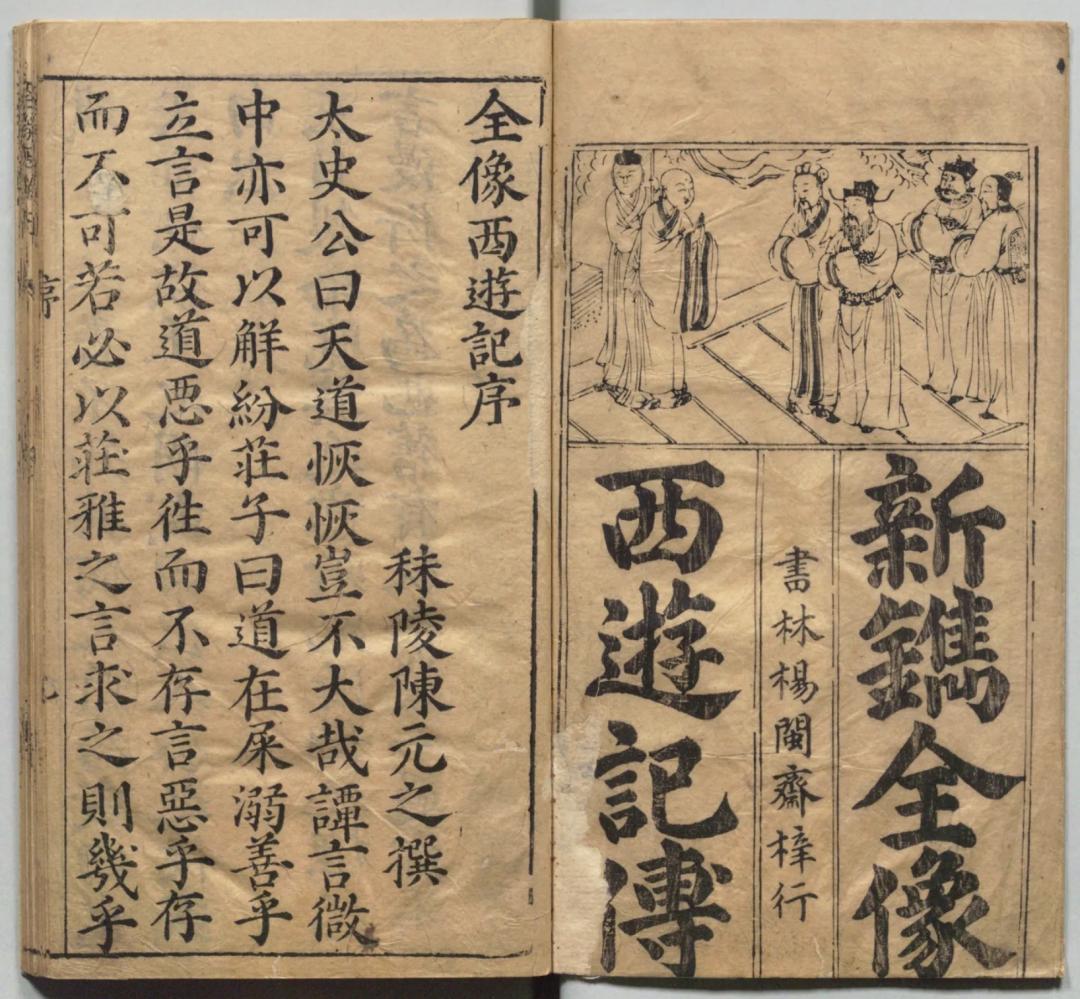 新鐫全像
書林楊閩齋梓行
西遊記傳
全像西遊記序
秣陵陳元之撰
太史公曰天道恢恢豈不大哉譚言微
中亦可以解紛莊子曰道在屎溺善乎
立言是故道惡乎往而不存言惡乎存
而不可若必以莊雅之言求之則幾乎
序